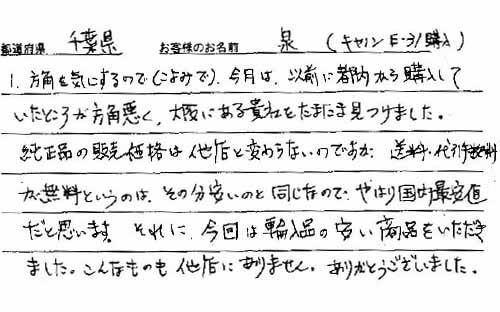 都道府県 千葉県 お客様のお名前 泉 (キャノン E-31購入)
1. 方角を気にするので(こよみで)、今月は、以前に都内から購入して
いたところが方角悪く、大阪にある貴社をたまたま見つけました。
純正品の販売価格は他店と変わらないのですが、送料・代引手数料
が無料というのは、その分安いのと同じなので、やはり国内最安値
だと思います。それに、今回は輸入品の安い商品をいただき
ました。こんなものも他店にありません。ありがとうございました。